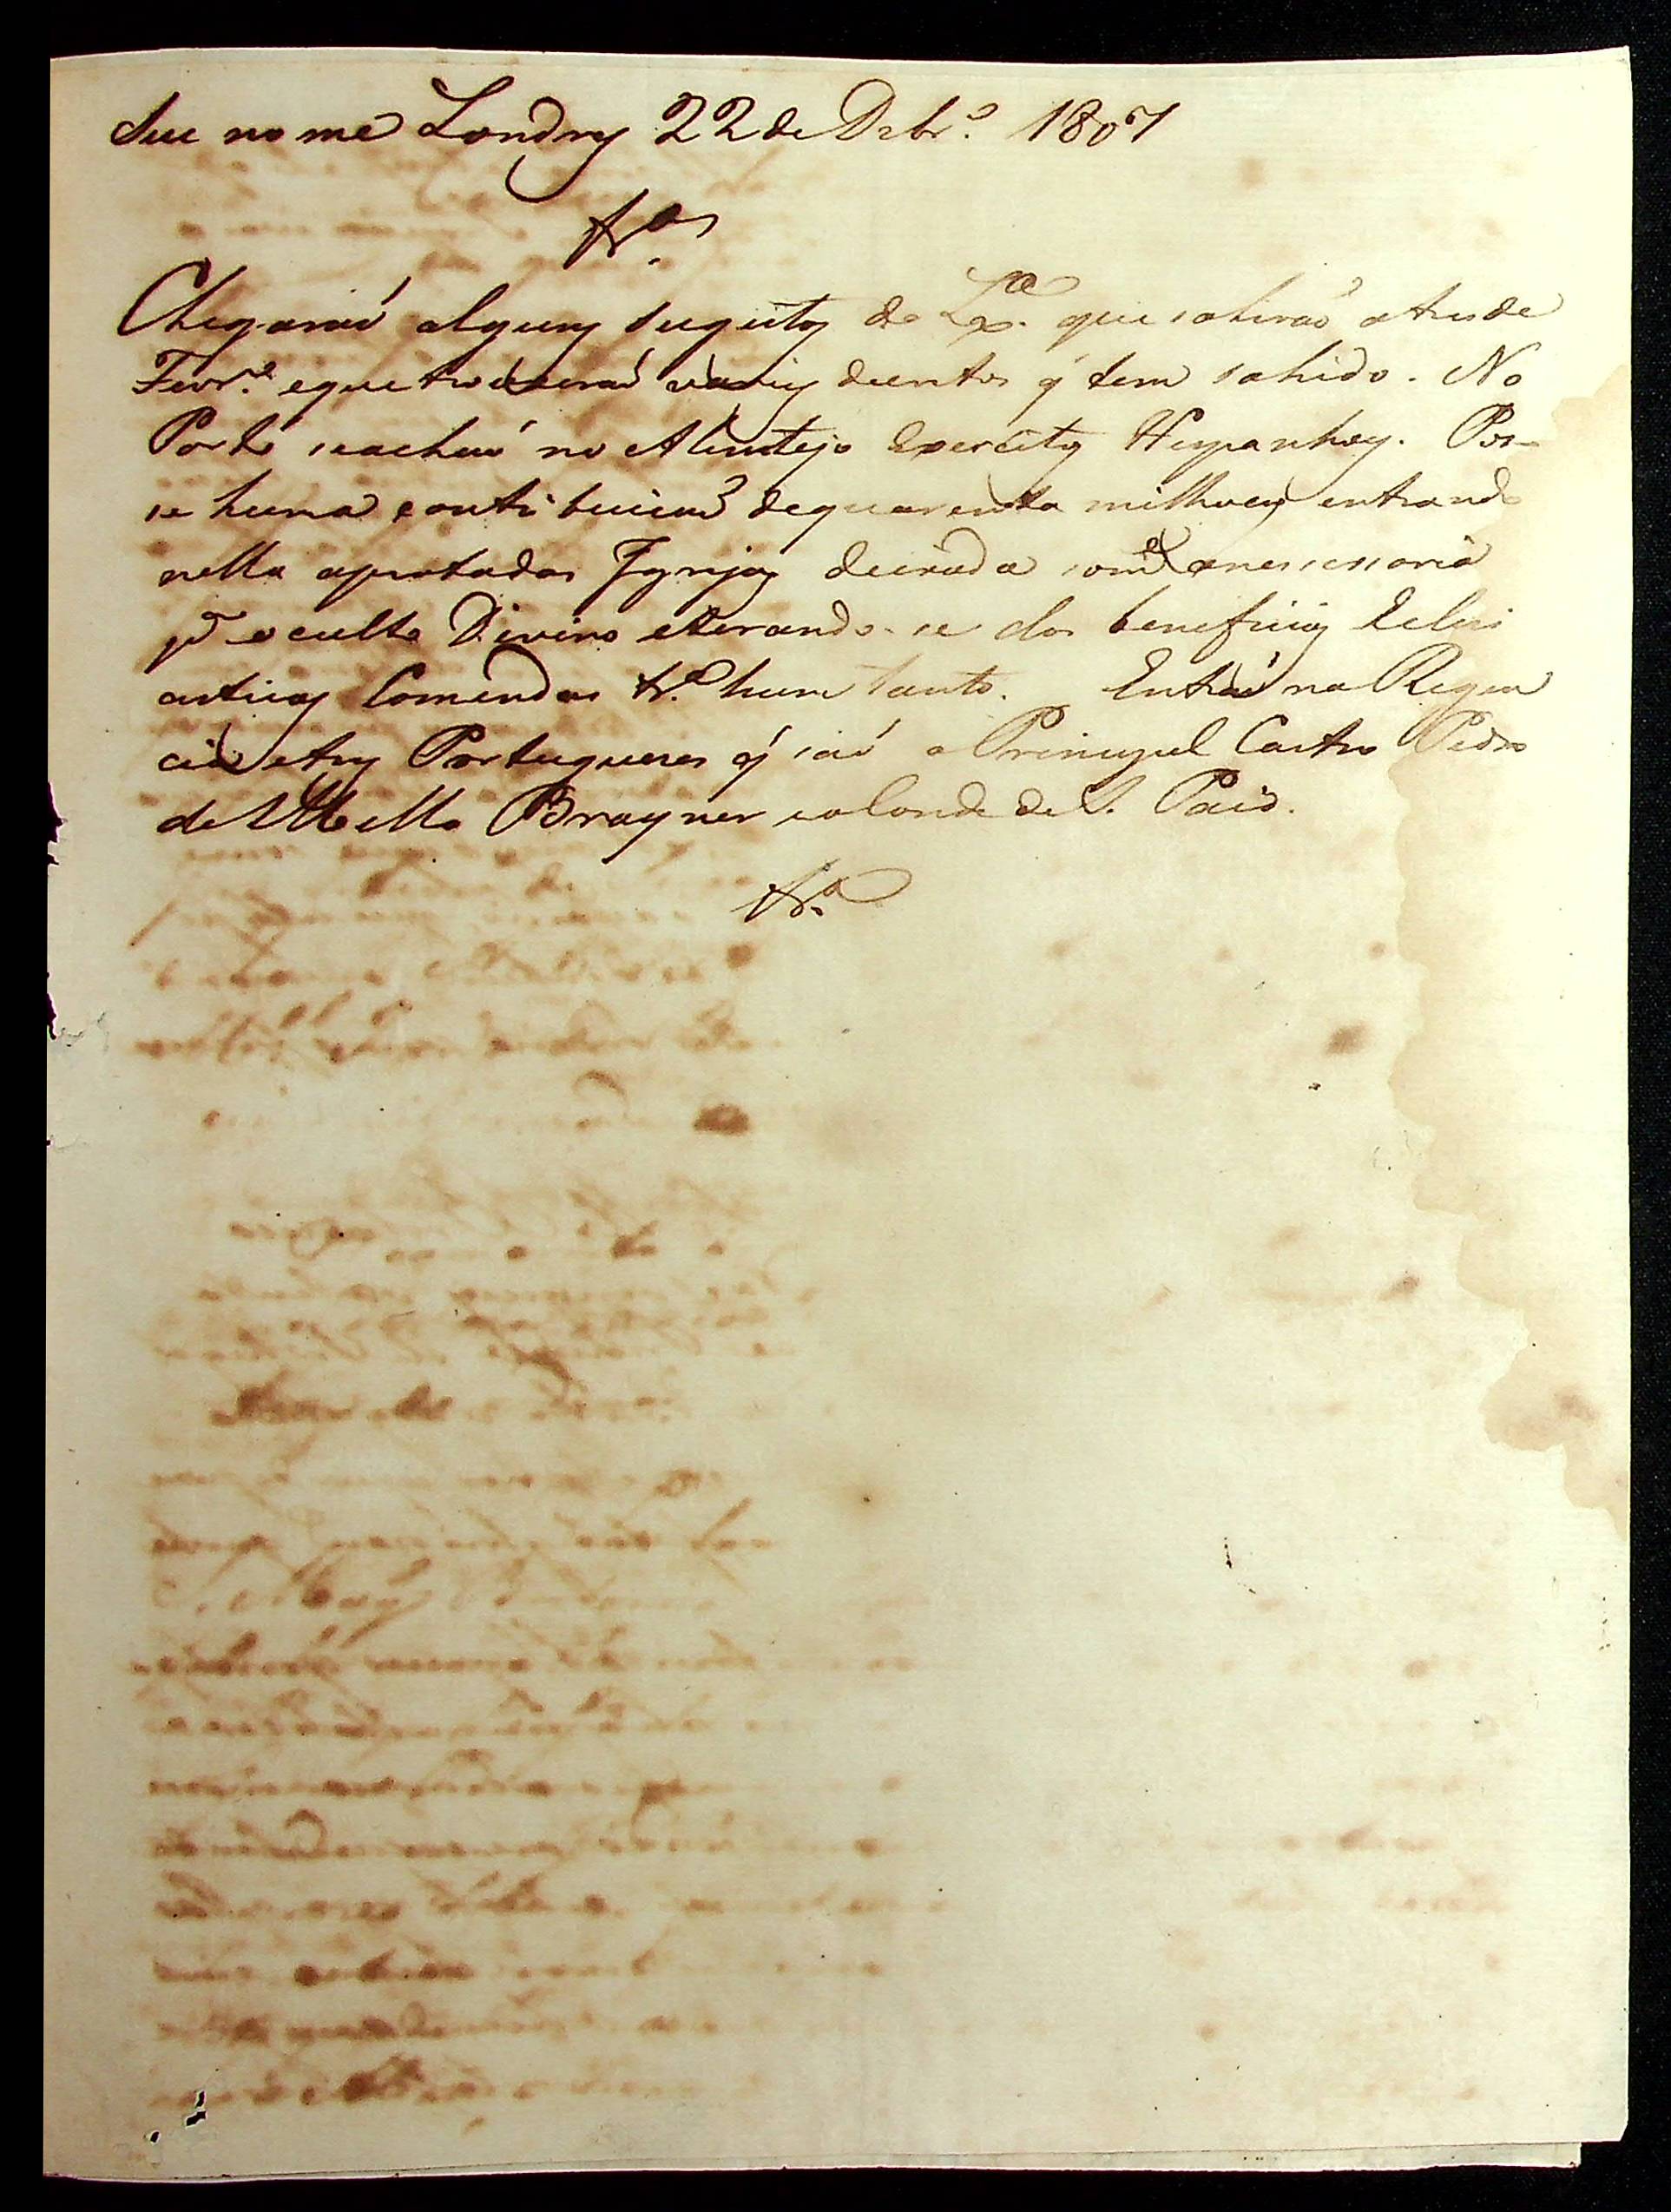 seu nome Londres 22 de Dzbrº 1807
Chegaraó alguns sugeitos de Lxª. que sahiraó a tres de
Fevrº. e que trouxeraó varios decretos q̃ tem sahido. No
Porto e achaó no Alentejo Exercitos Hespanhoes. Poz-
se huma contribuiçaó de quarenta milhoens entrando
nella a prata das Igrejas deixada somte. a nescessaria
pª. o culto Divino e tirando-se dos beneficios Eclesi
asticos Comendas tr.ª hum tanto. Entraó na Regen
cia tres Portuguezes q̃ saó o Principal Castro Pedro
de Mello Brayner e o Conde de S. Paio.